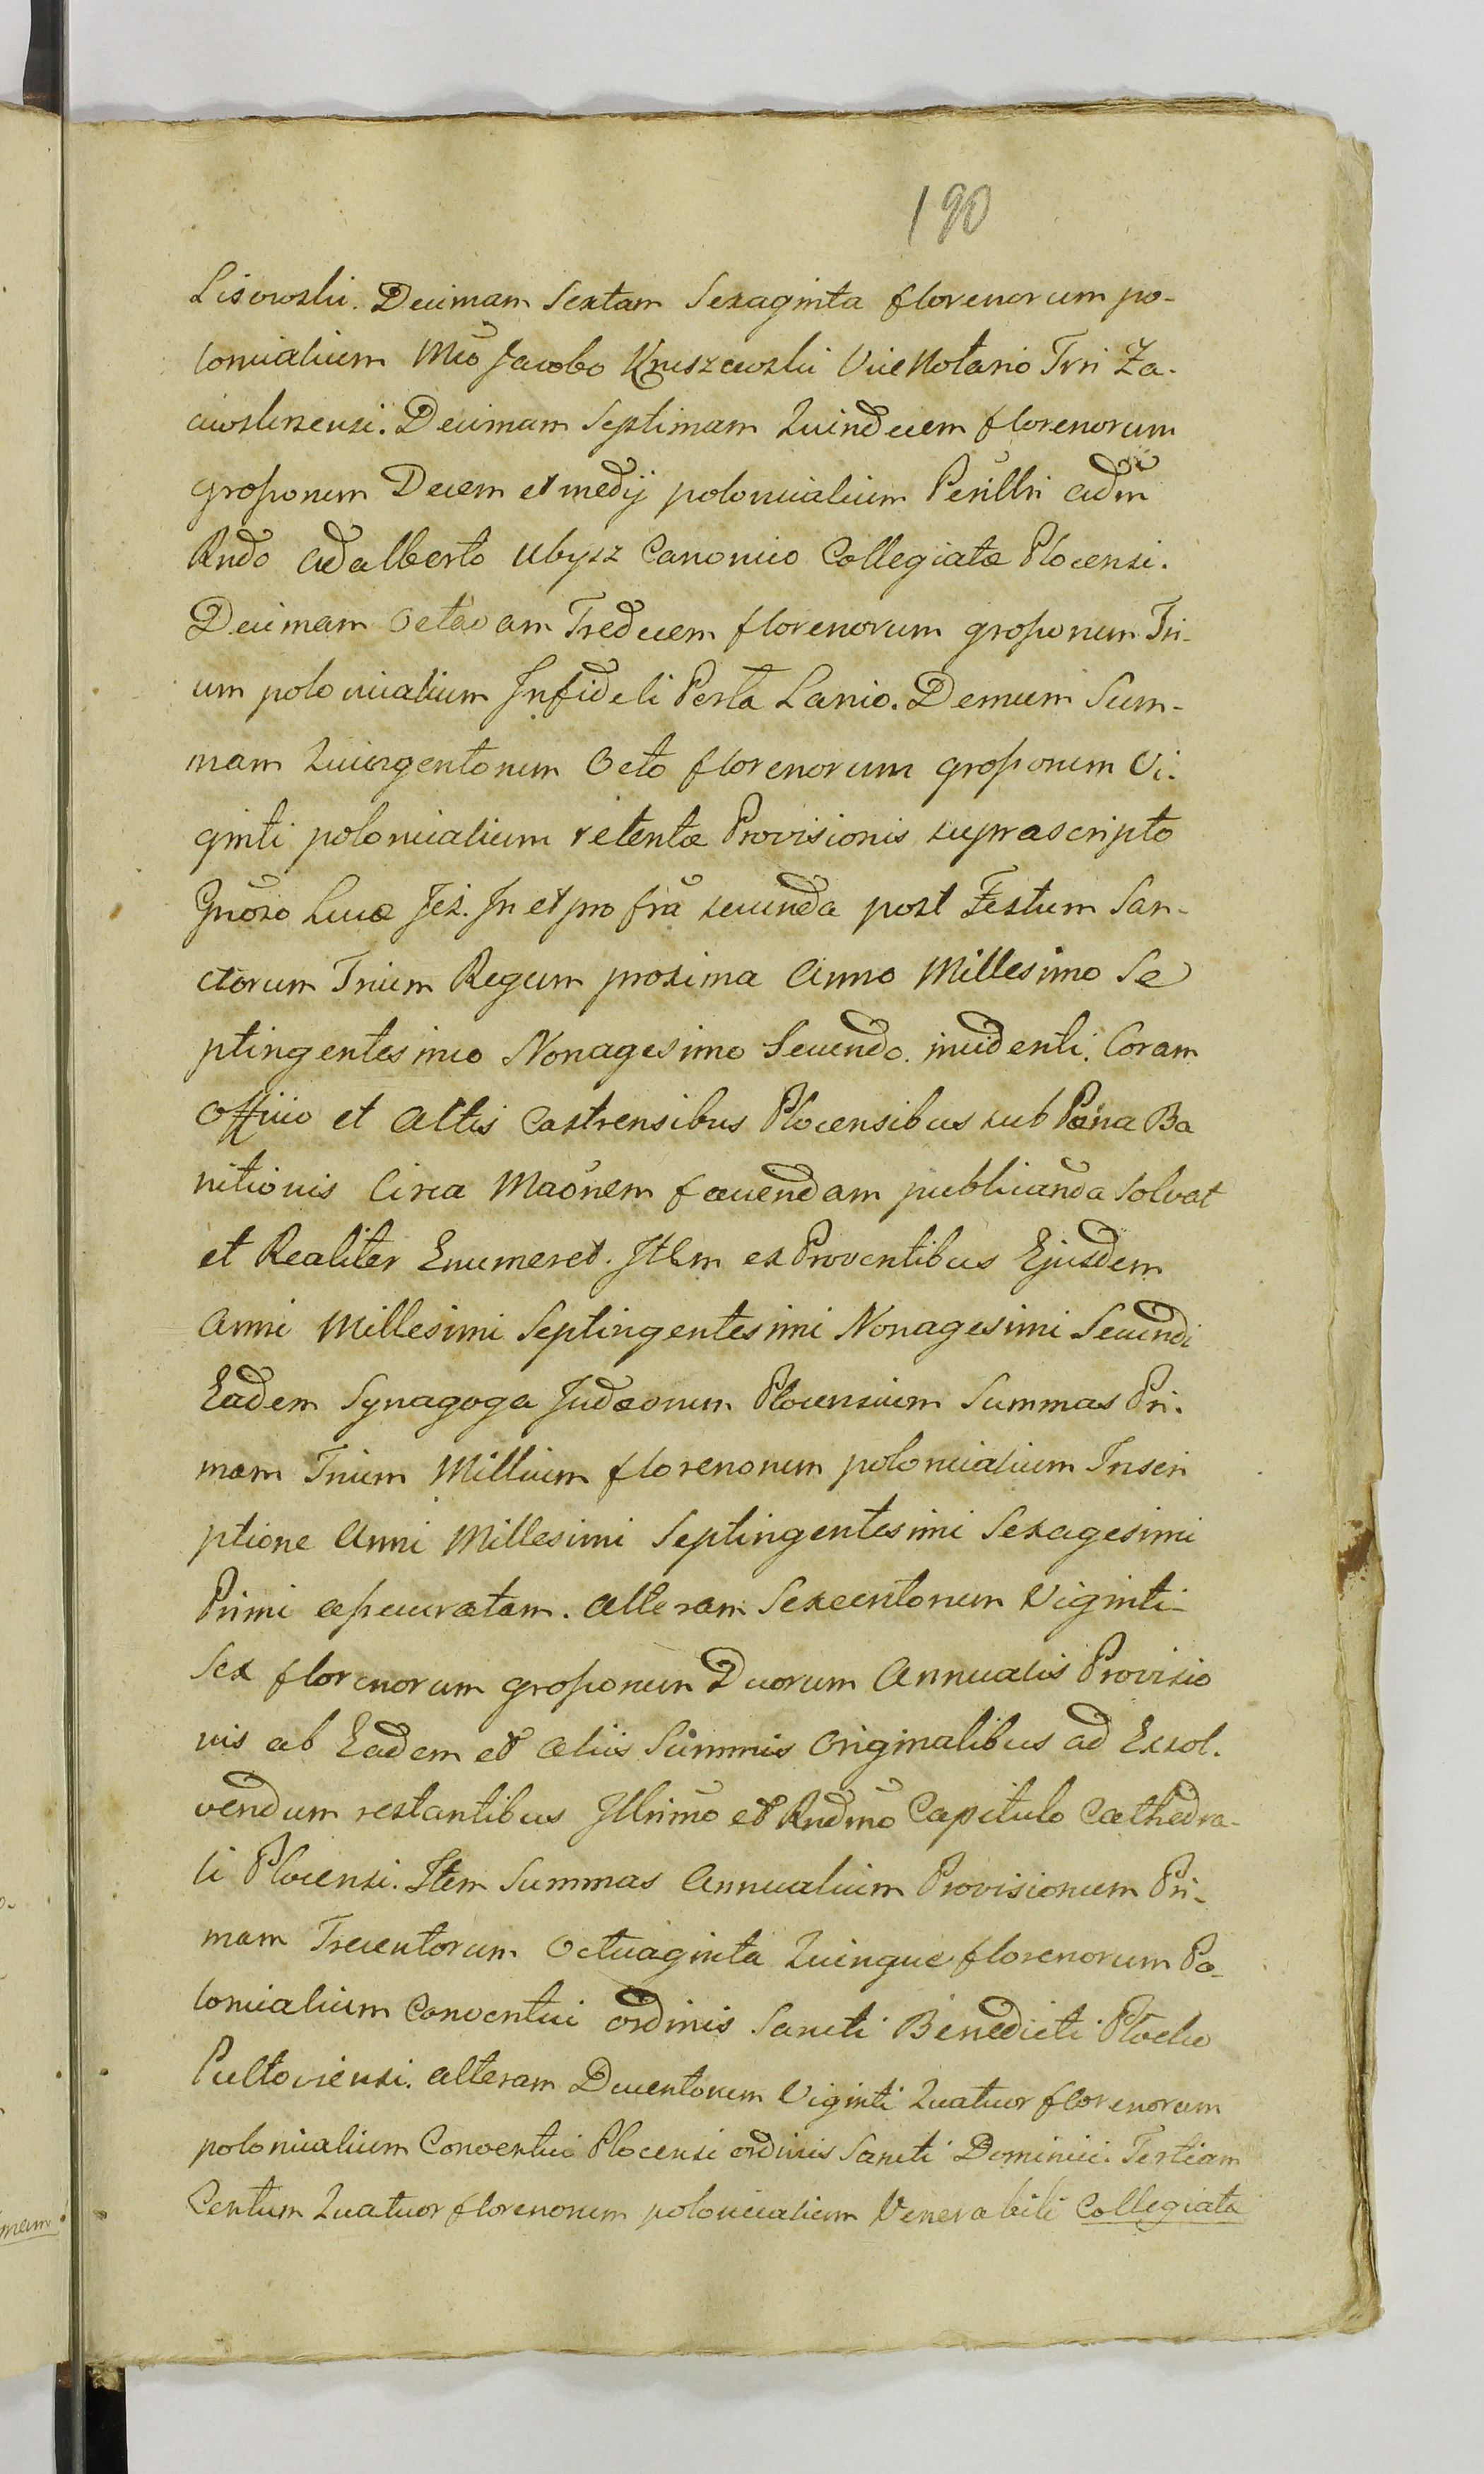 190
Lisowski. Decimam Sextam Sexaginta florenorum po-
lonicalium Mco Jacobo Kruszewski ViceNotario Trri Za-
wskrzensi. Decimam Septimam Quindecem florenorum
grossorum Decem et medij polonicalium Perillri adm
Rndo Adalberto Ubysz Canonico Collegiatæ Plocensi.
Decimam Octavam Tredecem florenorum grossorum Tri-
um polonicalium Infideli Perla Lanio. Demum Sum-
mam Quingentorum Octo florenorum grossorum Vi-
ginti polonicalium retentæ Provisionis suprascripto
Gnoso Lucæ Jeż. In et pro fria secunda post Festum San-
ctorum Trium Regum proxima Anno Millesimo Se
ptingentesimo Nonagesimo Secundo. incidenti. Coram
Officio et Actis Castrensibus Plocensibus sub Pæna Ba
nitionis Circa Maonem facendam publicanda solvat
et Realiter Enumeret. Item ex Proventibus Ejusdem
Anni Millesimi Septingentesimi Nonagesimi Secundi
Eadem Synagoga Judæorum Plocensium Summas Pri-
mam Trium Millium florenorum polonicalium Inscri
ptione Anni Millesimi Septingentesimi Sexagesimi
Primi assecuratam. Alteram Sexcentorum Viginti-
Sex florenorum grossorum Duorum Annualis Provisio
nis ab Eadem et aliis Summis Originalibus ad Exsol-
vendum restantibus Illrimo et Rndmo Capitulo Cathedra-
li Plocensi. Item Summas Annualium Provisionum Pri-
mam Trecentorum Octuaginta Quinque florenorum Po-
lonicalium Conventui ordinis Sancti Benedicti Plocko
Pultoviensi. alteram Ducentorum Viginti Quatuor florenorum
polonicalium Conventui Plocensi ordinis Sancti Dominici. Tertiam
Centum Quatuor florenorum polonicalium Venerabili Collegiatæ
mam